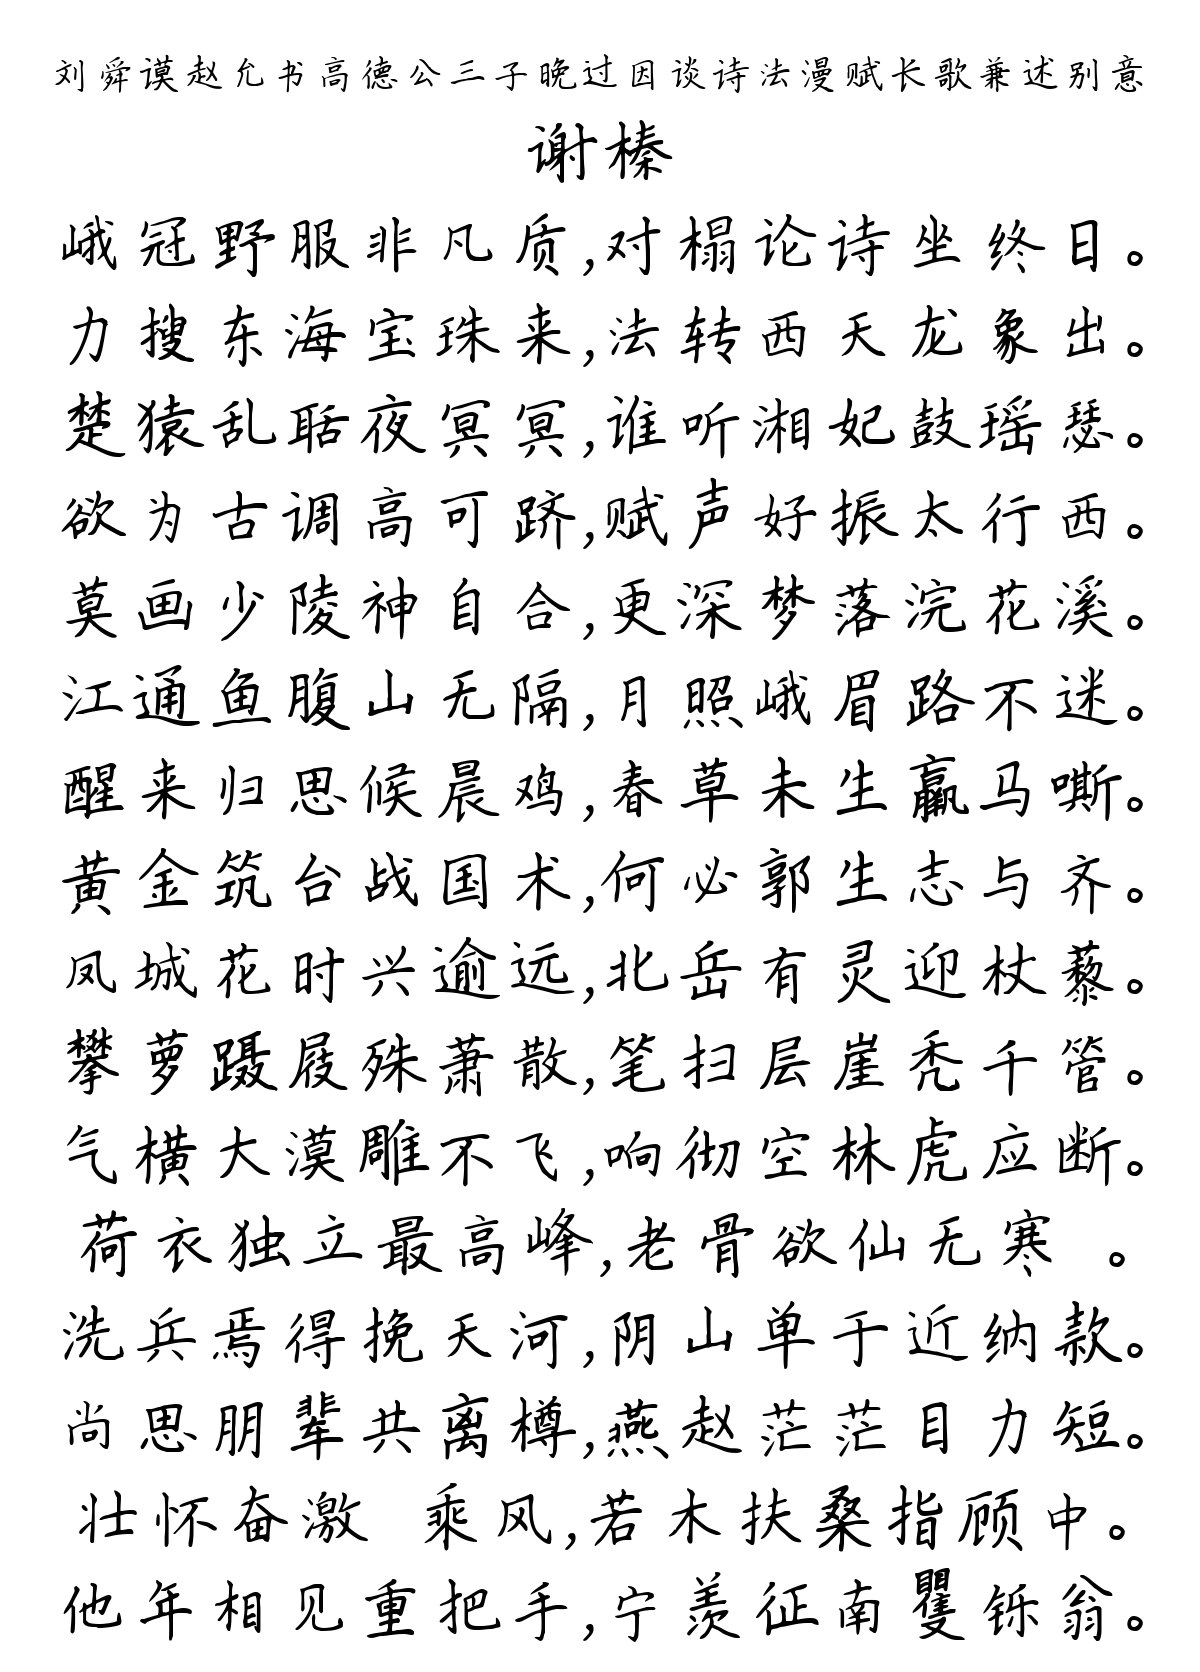 刘舜谟赵允书高德公三子晚过因谈诗法漫赋长歌兼述别意
谢榛
峨冠野服非凡质,对榻论诗坐终日。
力搜东海宝珠来,法转西天龙象出。
楚猿乱聒夜冥冥,谁听湘妃鼓瑶瑟。
欲为古调高可跻,赋声好振太行西。
莫画少陵神自合,更深梦落浣花溪。
江通鱼腹山无隔,月照峨眉路不迷。
醒来归思候晨鸡,春草未生赢马嘶。
黄金筑台战国术,何必郭生志与齐。
凤城花时兴逾远,北岳有灵迎杖藜。
攀萝蹑屐殊萧散,笔扫层崖秃千管。
气横大漠雕不飞,响彻空林虎应断。
荷衣独立最高峰,老骨欲仙无寒 。
洗兵焉得挽天河,阴山单于近纳款。
尚思朋辈共离樽,燕赵茫茫目力短。
壮怀奋激 乘风,若木扶桑指顾中。
他年相见重把手,宁羡征南矍铄翁。